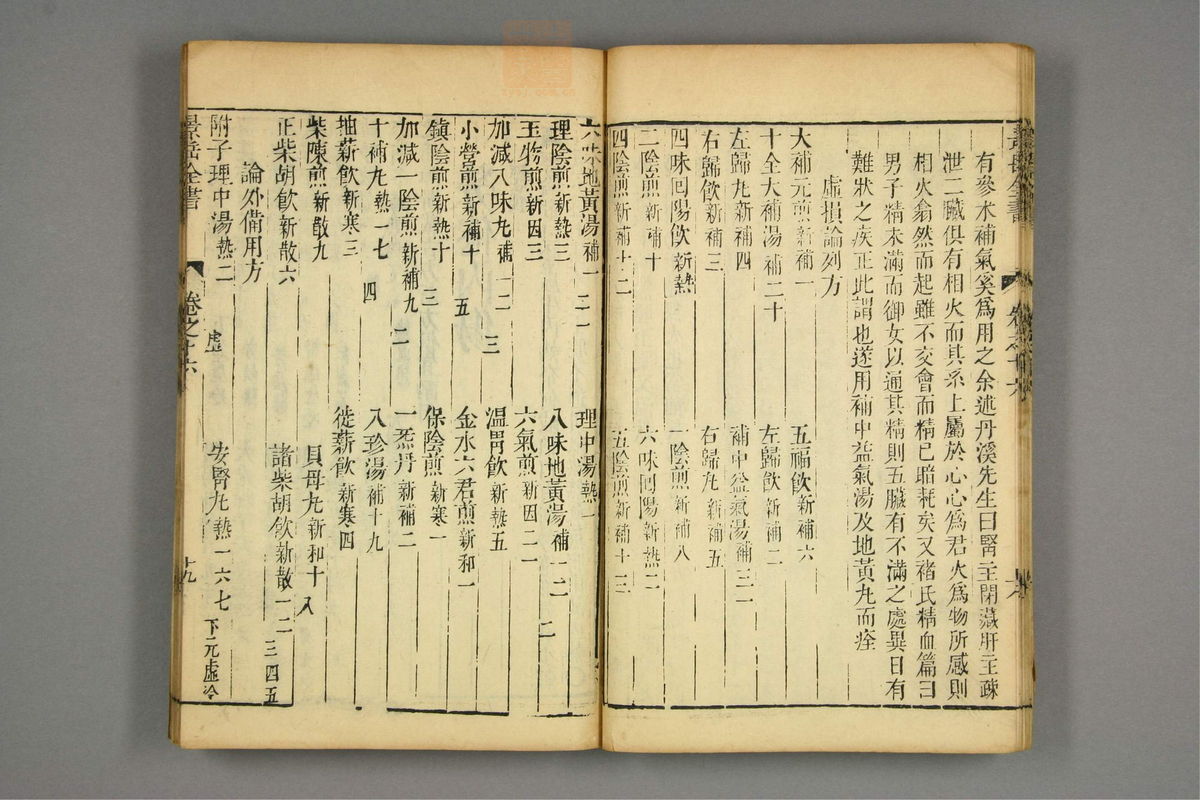 景岳全書
卷之十六
有參水補氣奚為用之余述丹溪先生曰腎主閉藏肝主疎
泄二臟俱有相火而其系上屬於心心為君火為物所感則
相火翕然而起雖不交會而精已暗耗矣又褚氏精血篇曰
男子精未滿而御女以通其精則五臟有不滿之處異日有
難狀之疾正此謂也遂用補中益氣湯及地黃丸而痊
虛損論列方
大補元煎 新補一
五福飲 新補六
十全大補湯 補二十
左歸飲 新補二
左歸丸 新補四
補中益氣湯 補三一
右歸飲 新補三
右歸丸 新補五
四味回陽飲 新熱
一陰煎 新補八
二陰煎 新補十
六味回陽 新熱二
四陰煎 新補十二
五陰煎 新補十三
六味地黃湯 補一二一
理中湯 熱一
理陰煎 新熱三
八味地黃湯 補一二二
玉物煎 新因三
六氣煎 新因二一
加減八味丸 補一二三
溫胃飲 新熱五
小營煎 新補十五
金水六君煎 新和一
鎮陰煎 新熱十三
保陰煎 新寒一
加減一陰煎 新補九二
一炁丹 新補二
十補丸 熱一七四
八珍湯 補十九
抽薪飲 新寒三
徙薪飲 新寒四
柴陳煎 新散九
貝母丸 新和十八
正柴胡飲 新散六
諸柴胡飲 新散一二三四五
論外備用方
附子理中湯 熱二 虛
安腎丸 熱一六七 下元虛冷
景岳全書
卷之十六
十九